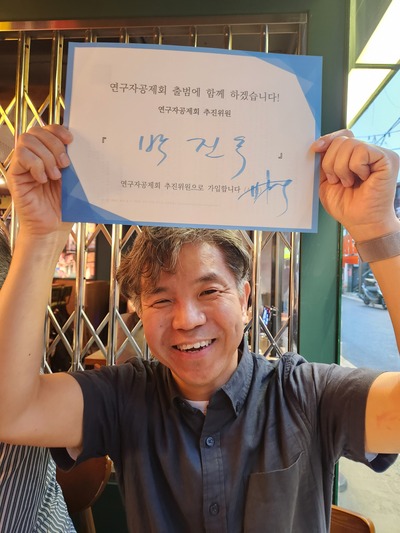 연구자공제회 출범에 함께 하겠습니다!
연구자공제회 추진위원
『 박 진 옥 』
연구자공제회 추진위원으로 가입합니다